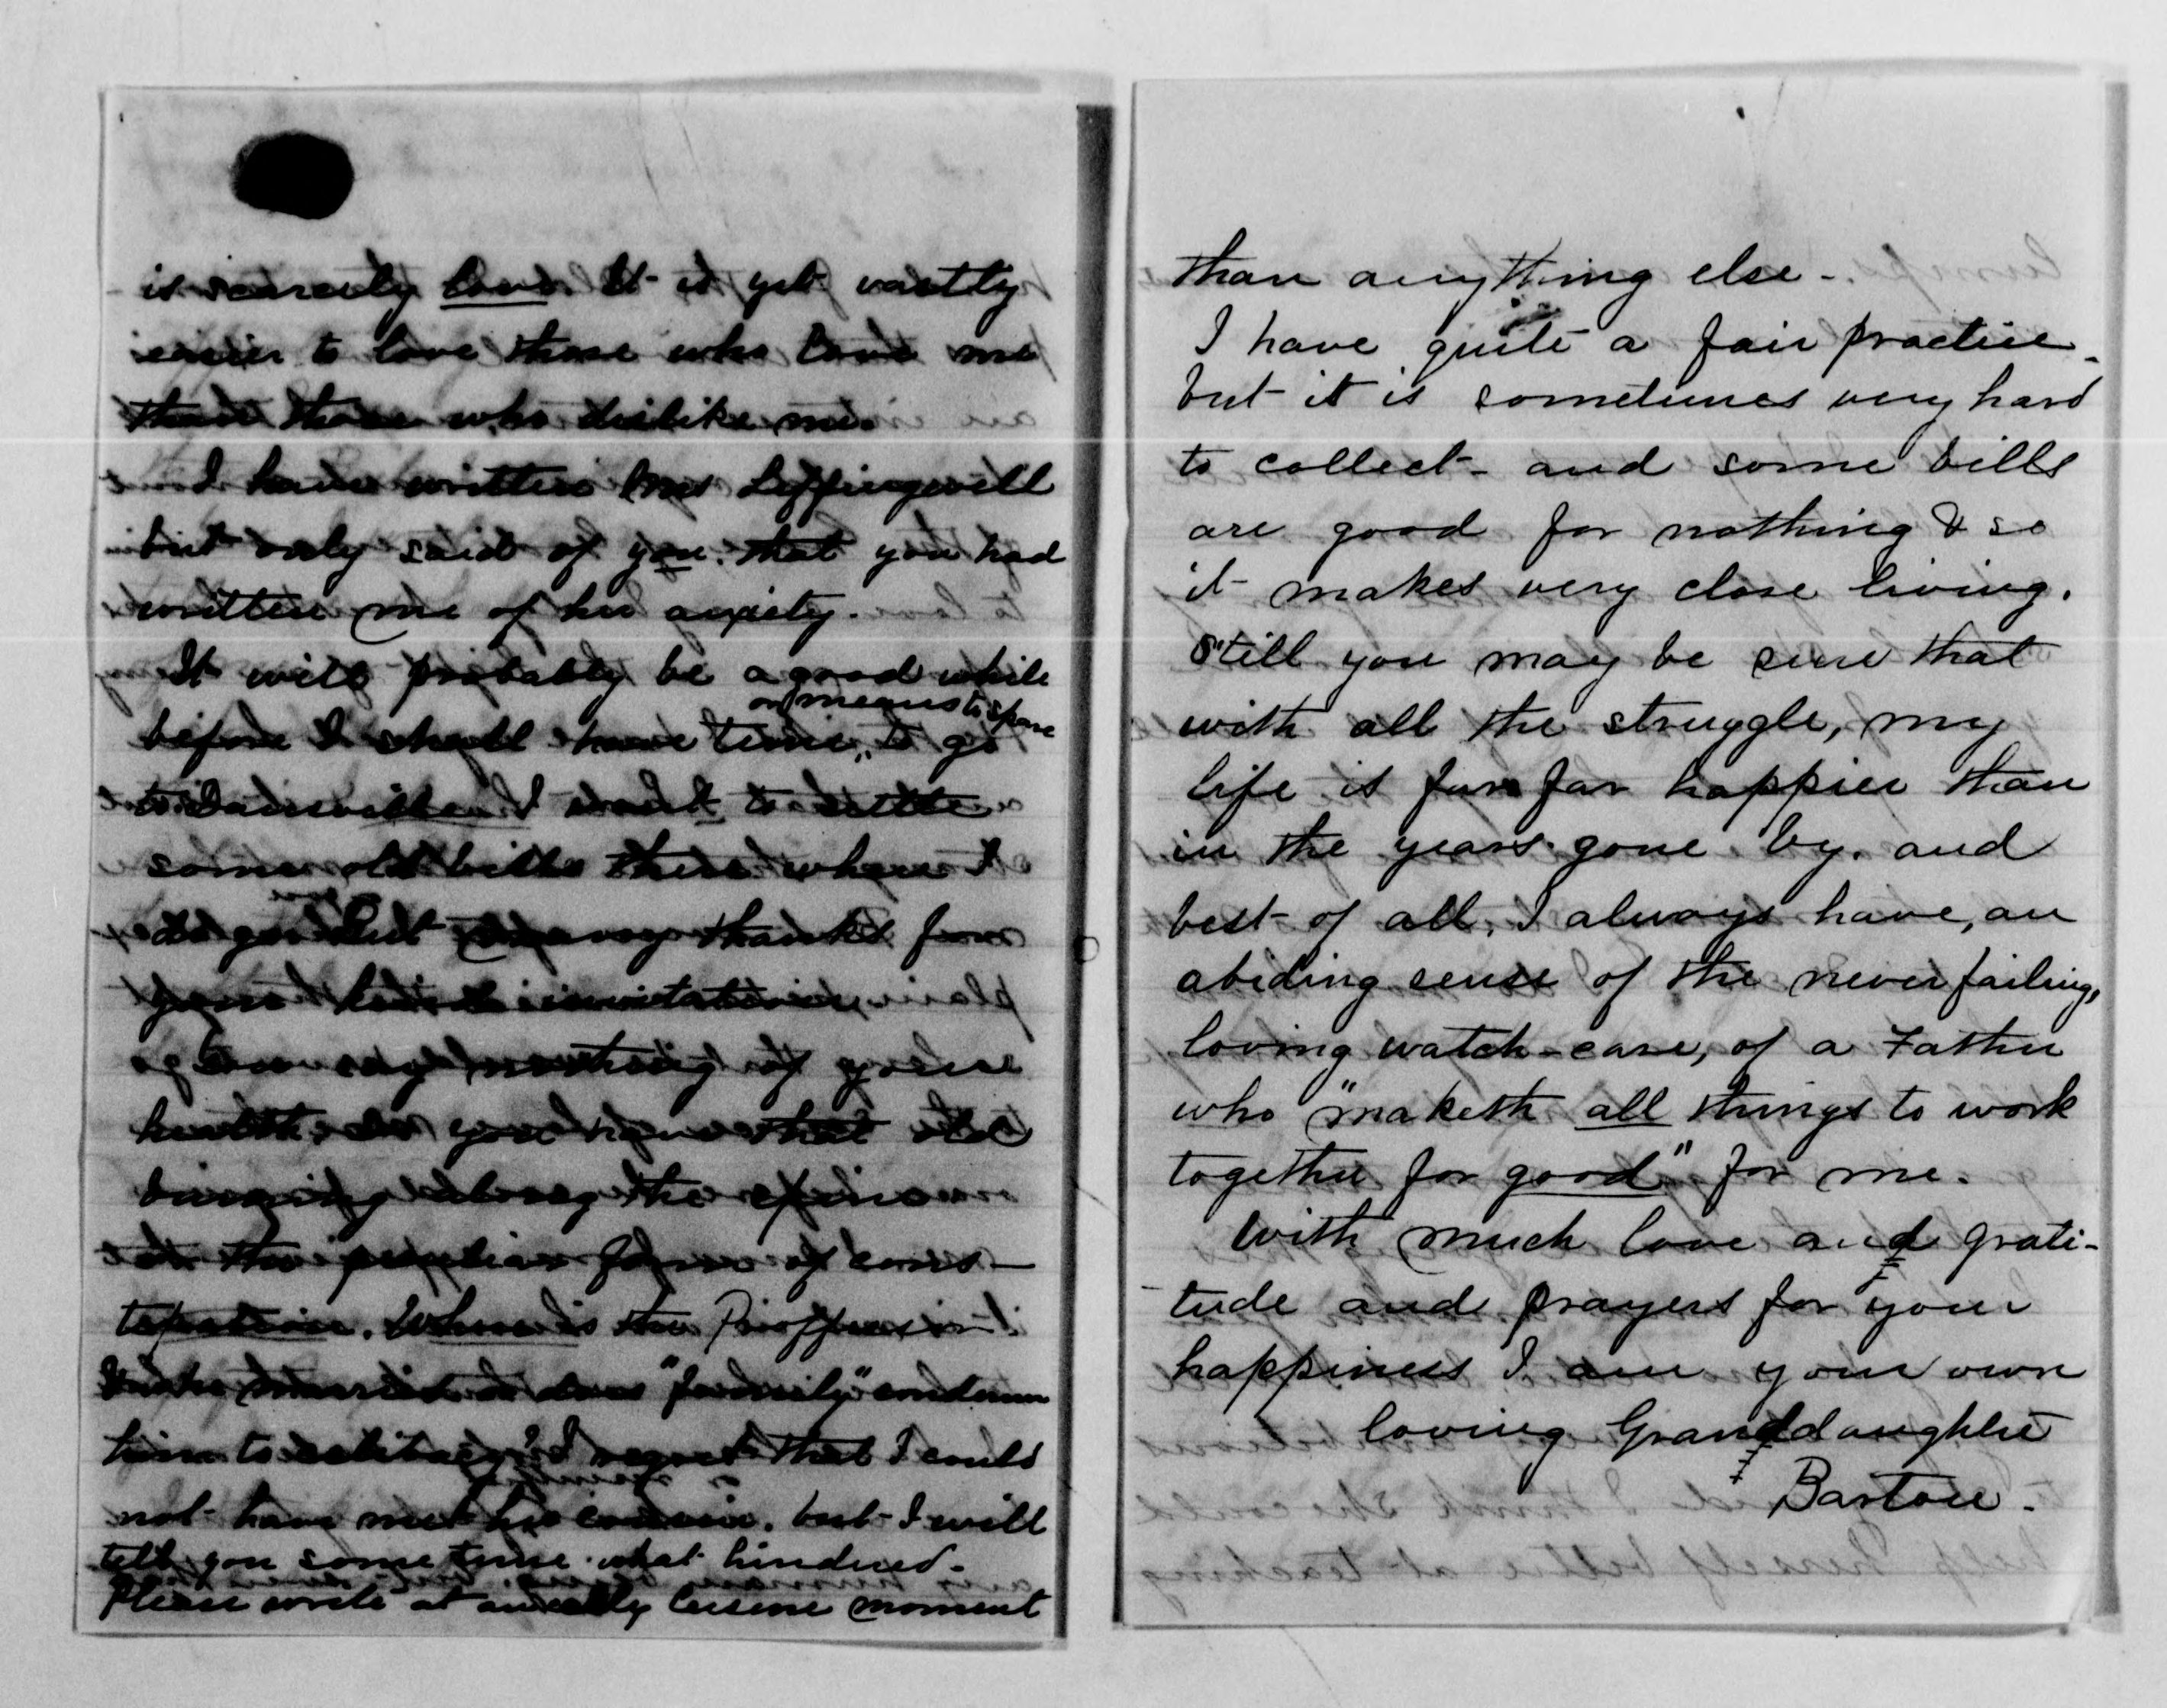 is scarcely love. It is yet vastly
easier to love those who love me
than those who dislike me.
I have written Mrs Leffingwell
but only said of you that you had
written me of her anxiety.
It will probably be a good while
or means to spare
before I shall have time, to go
to Dansville. I want to settle
some old bills there when I
do go. But many thanks for
your kind invitation
say nothing of your
health, do you have that old
burning along the spine
or the peculiar form of cons-
tipation. Where is the
he married or does "family" condemn
him to celibacy? I regret that I could
not have met his cousin, but I will
tell you some time what hindered.
Please write at an early leisure moment
than anything else -
I have quite a fair practice
but it is sometimes very hard
to collect - and some bills
are good for nothing & so
it makes very close living.
Still you may be sure that
with all the struggle, my
life is far far happier than
in the years gone by. and
best of all, I always have, an
abiding sense of the never failing,
loving watch-care, of a Father
who "maketh all things to work
together for good" for me.
With much love and grati-
tude and prayers for your
happiness I am your own
loving Granddaughter
Barton.